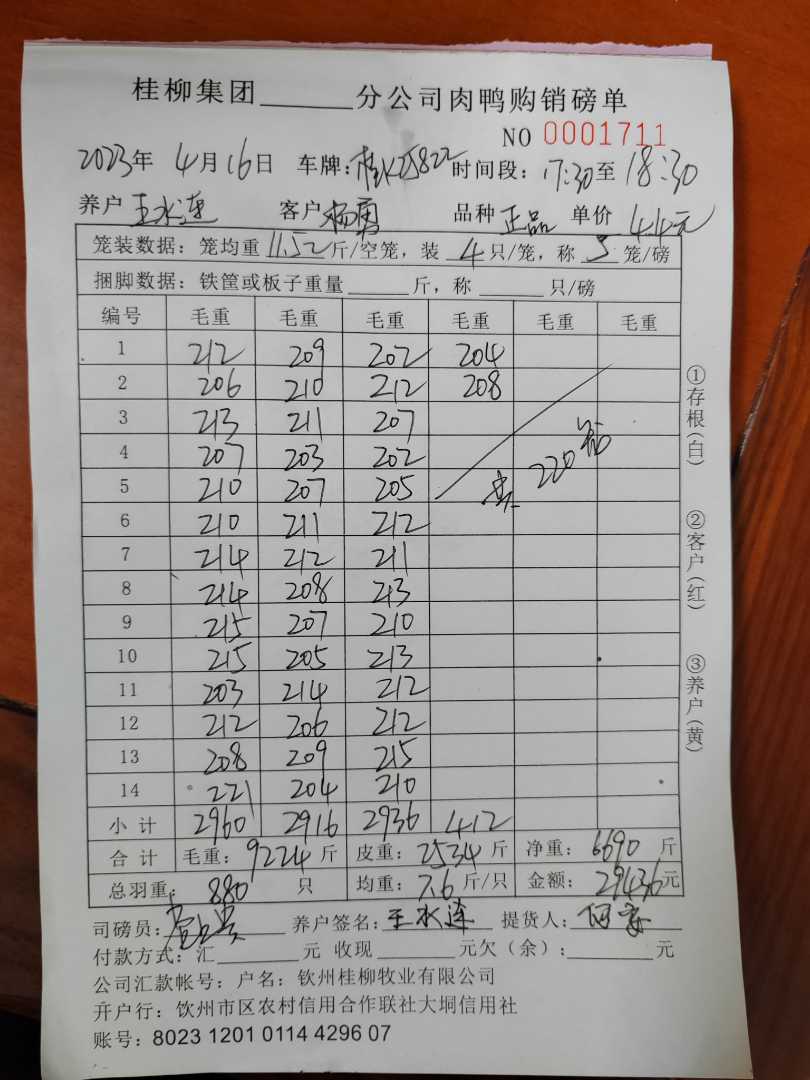 桂柳集团______分公司肉鸭购销磅单
NO 0001711
2023年 4月16日 车牌:桂K25822 时间段:17:30至18:30
养户 王水连 客户 杨勇 品种 正品 单价 4.4元
笼装数据:笼均重 11.52斤/空笼,装 4只/笼,称 5笼/磅
捆脚数据:铁筐或板子重量______斤,称______只/磅
编号 毛重 毛重 毛重 毛重 毛重 毛重
1 212 209 202 204
2 206 210 212 208
3 213 211 207
4 207 203 202
5 210 207 205
共 220笼
6 210 211 212
7 214 212 211
8 214 208 213
9 215 207 210
10 215 205 213
11 203 214 212
12 212 206 212
13 208 209 215
14 221 204 210
小计 2960 2916 2936 412
合计 毛重:9224斤 皮重:2534斤 净重:6690斤
总羽重:880只 均重:7.6斤/只 金额:29436元
司磅员: 养户签名:王水连 提货人:
付款方式:汇______元 收现______元欠(余):______元
公司汇款帐号:户名:钦州桂柳牧业有限公司
开户行:饮州市区农村信用合作联社大垌信用社
账号:8023 1201 0114 4296 07
①存根(白)
②客户(红)
③养户(黄)